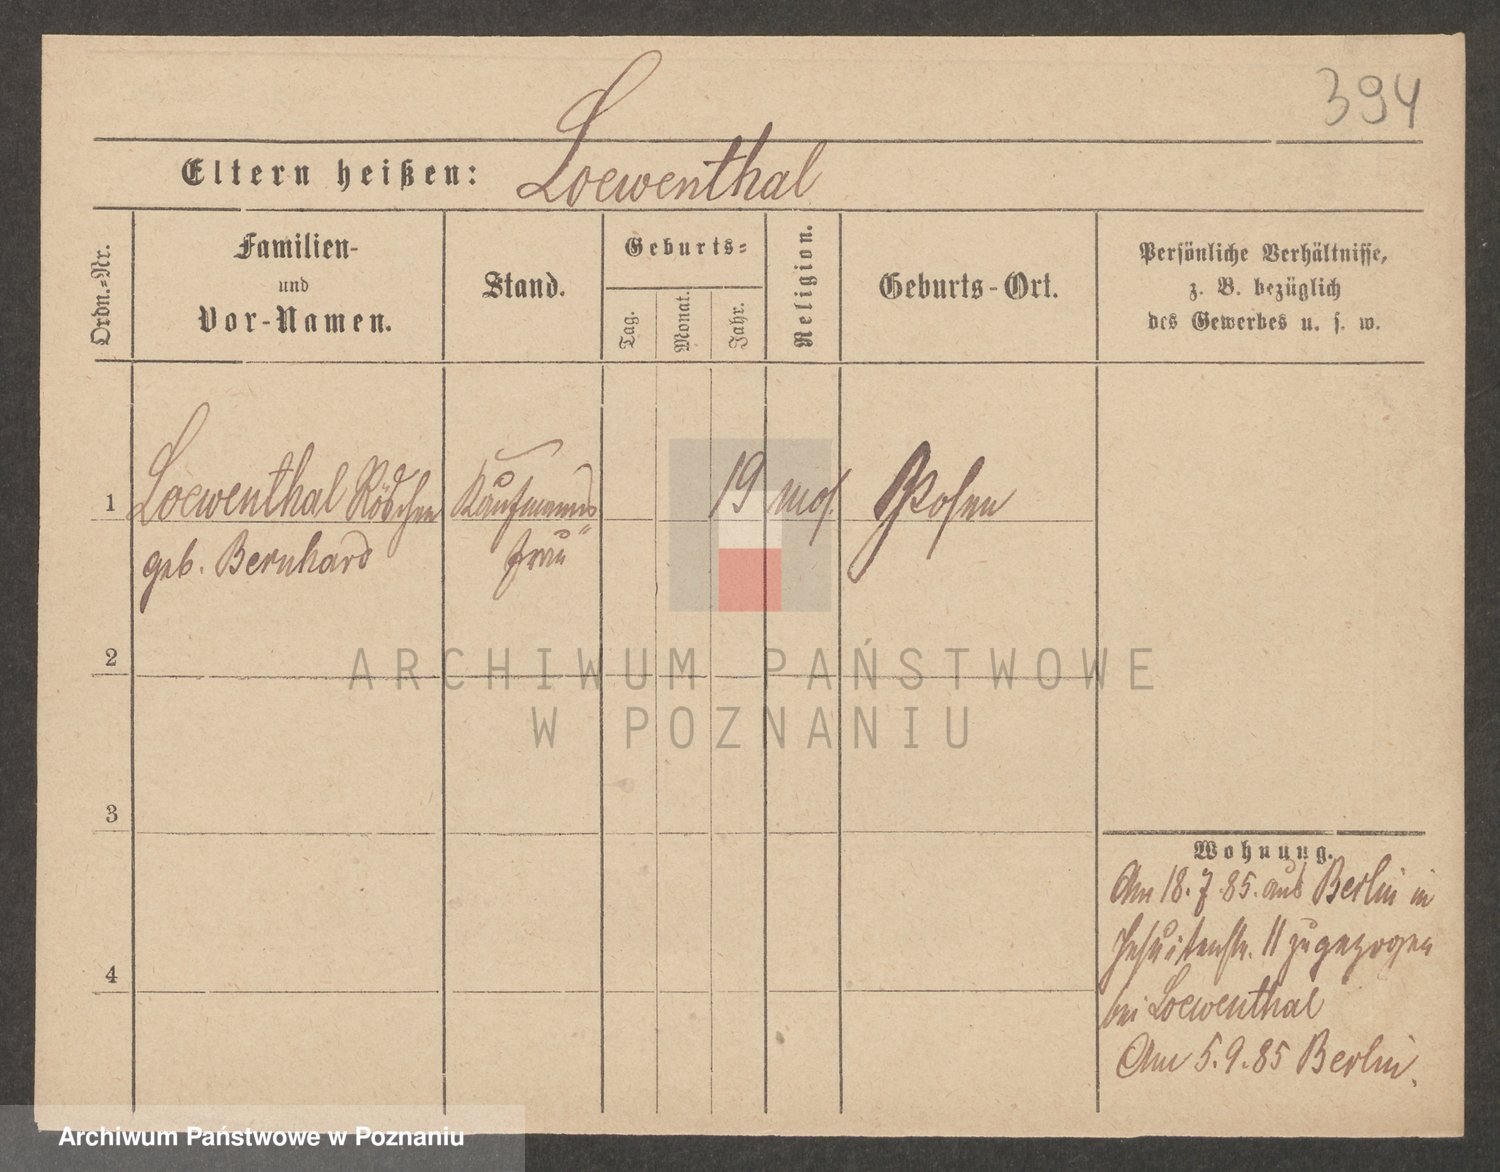 394
Eltern heißen: Loewenthal
Ordn.-Nr.
Familien-
und
Vor-Namen.
Stand.
Geburts-
Tag.
Monat.
Jahr.
Religion.
Geburts-Ort.
Persönliche Verhältnisse,
z. B. bezüglich
des Gewerbes u. s. w.
1 Loewenthal Röschen Kaufmanns 19 mos. Posen
geb. Bernhard frau
2
3
4
Wohnung.
Am 18.7.85. aus Berlin in
Jesuitenstr. 11 zugezogen
bei Loewenthal
Am 5.9.85 Berlin.
ARCHIWUM PAŃSTWOWE
W POZNANIU
Archiwum Państwowe w Poznaniu